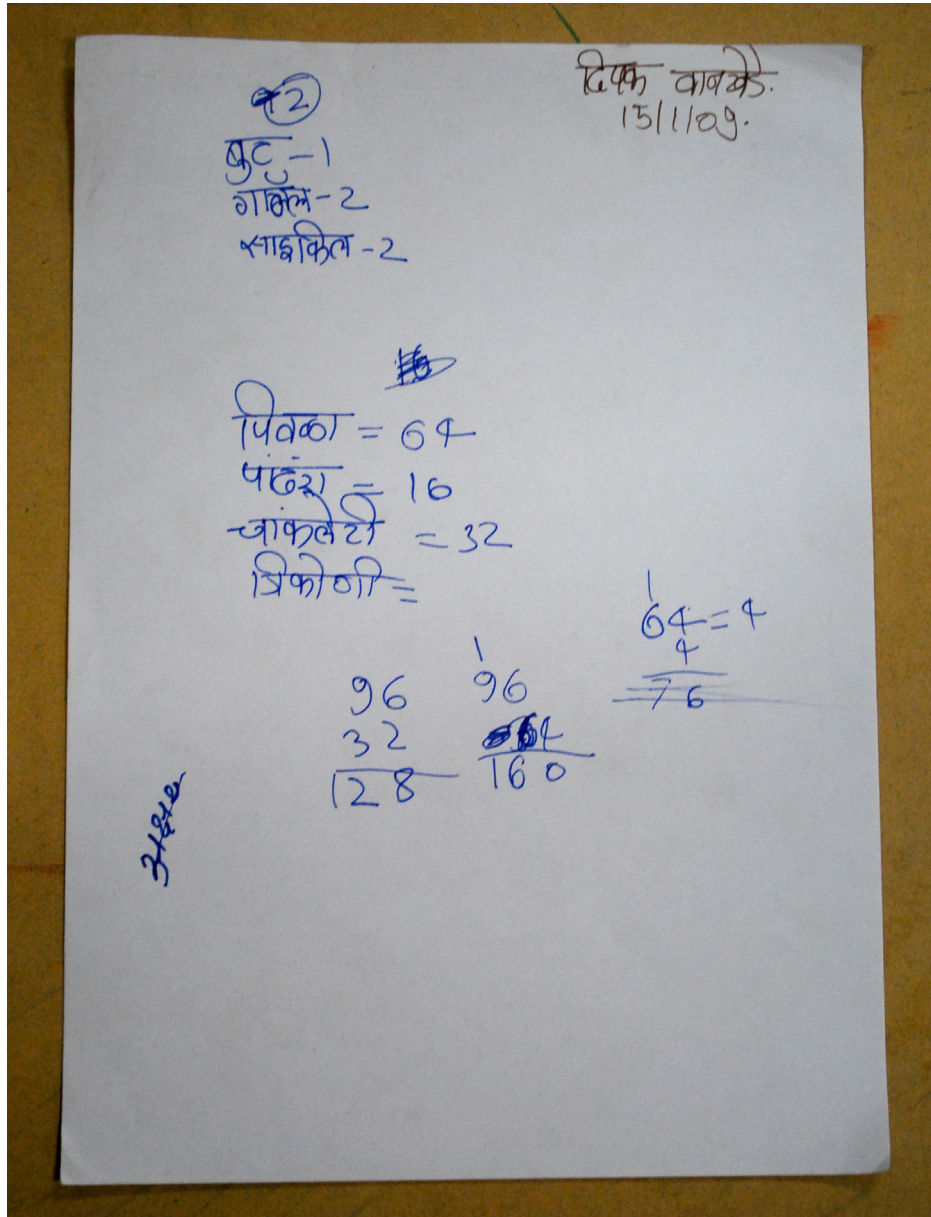 दिपक वानखेडे.
15/1/09.
2
बुट - 1
गॉगल - 2
साइकिल - 2
पिवळा = 64
पांढरा = 16
चांकलेटी = 32
त्रिकोणी =
1
64 = 4
4
76
96
32
128
1
96
64
160